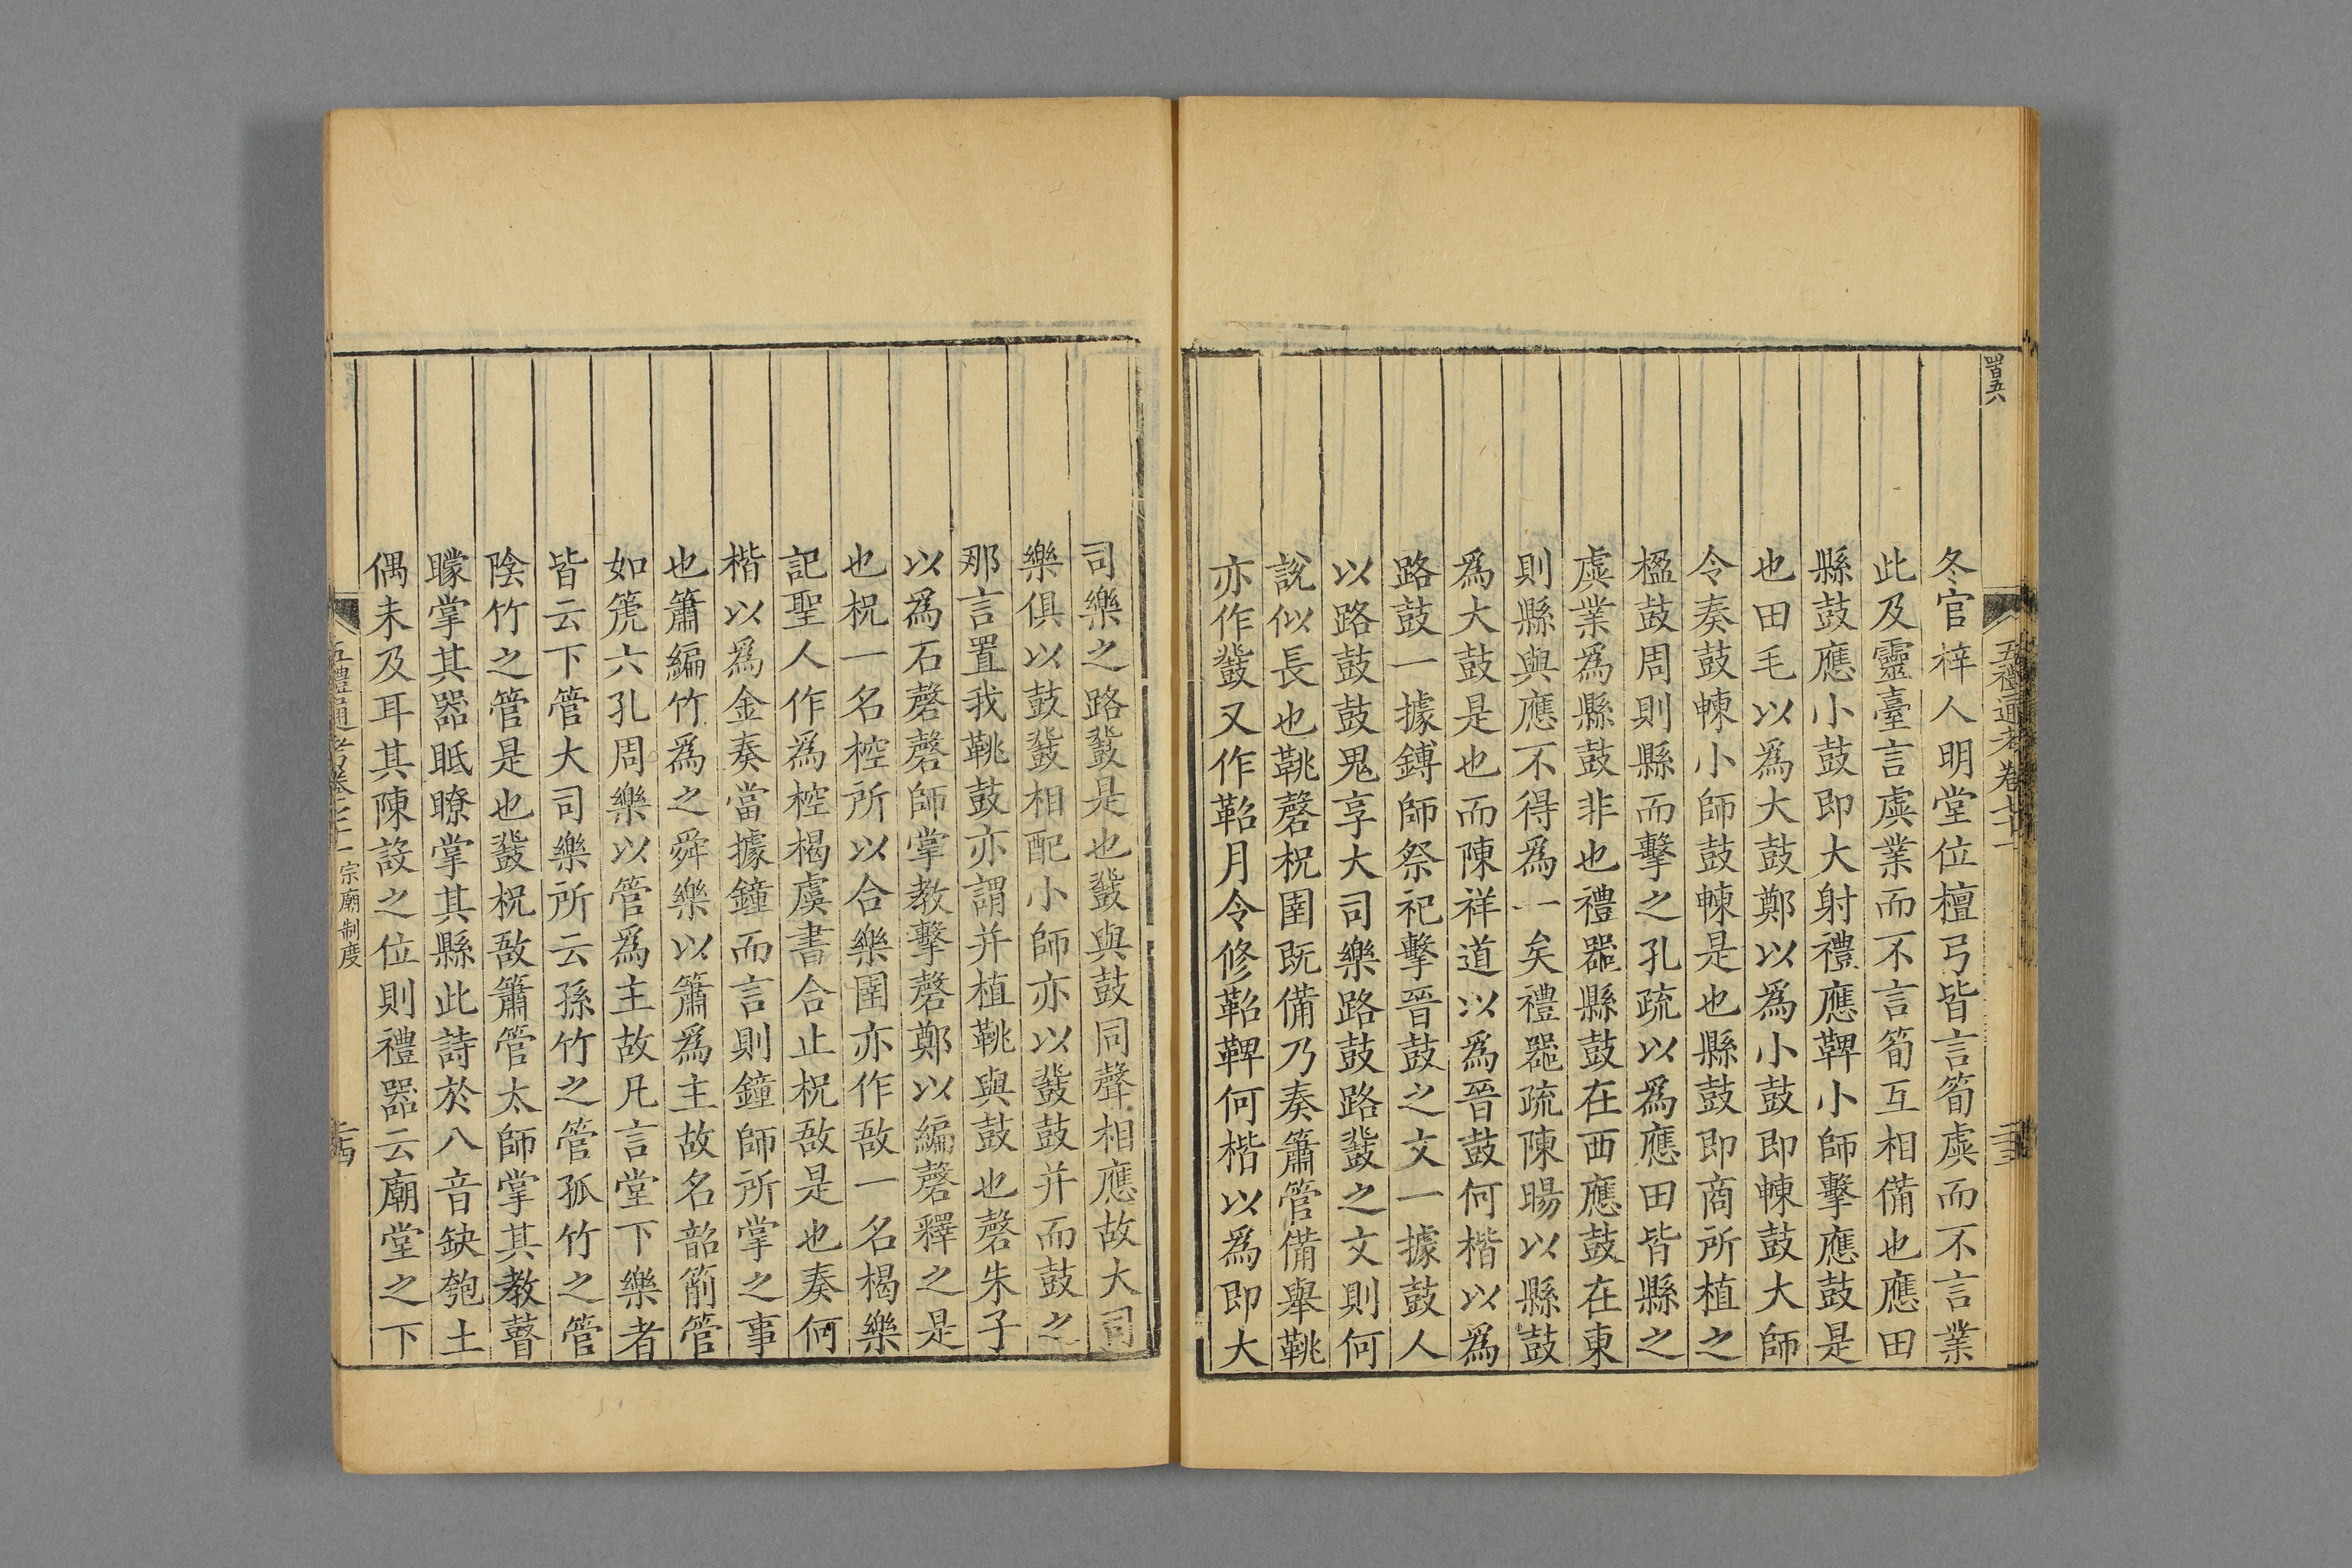 冬官梓人明堂位檀弓皆言筍虡而不言業
此及靈臺言虡業而不言筍互相備也應田
縣鼓應小鼓即大射禮應鞞小師擊應鼓是
也田毛以為大鼓鄭以為小鼓即朄鼓大師
令奏鼓朄小師鼓朄是也縣鼓即商所植之
楹鼓周則縣而擊之孔疏以為應田皆縣之
虡業為縣鼓非也禮器縣鼓在西應鼓在東
則縣與應不得為一矣禮器疏陳暘以縣鼓
為大鼓是也而陳祥道以為晉鼓何楷以為
路鼓一據鎛師祭祀擊晉鼓之文一據鼓人
以路鼓鼓鬼享大司樂路鼓路鼗之文則何
說似長也鞉磬柷圉既備乃奏簫管備舉鞉
亦作鼗又作鞀月令修鞀鞞何楷以為即大
司樂之路鼗是也鼗與鼓同聲相應故大司
樂俱以鼓鼗相配小師亦以鼗鼓并而鼓之
那言置我鞉鼓亦謂并植鞉與鼓也磬朱子
以為石磬磬師掌教擊磬鄭以編磬釋之是
也柷一名椌所以合樂圉亦作敔一名楬樂
記聖人作為椌楬虞書合止柷敔是也奏何
楷以為金奏當據鐘而言則鐘師所掌之事
也簫編竹為之舜樂以簫為主故名韶箾管
如箎六孔周樂以管為主故凡言堂下樂者
皆云下管大司樂所云孫竹之管孤竹之管
陰竹之管是也鼗柷敔簫管太師掌其教瞽
矇掌其器眡瞭掌其縣此詩於八音缺匏土
偶未及耳其陳設之位則禮器云廟堂之下
宗廟制度